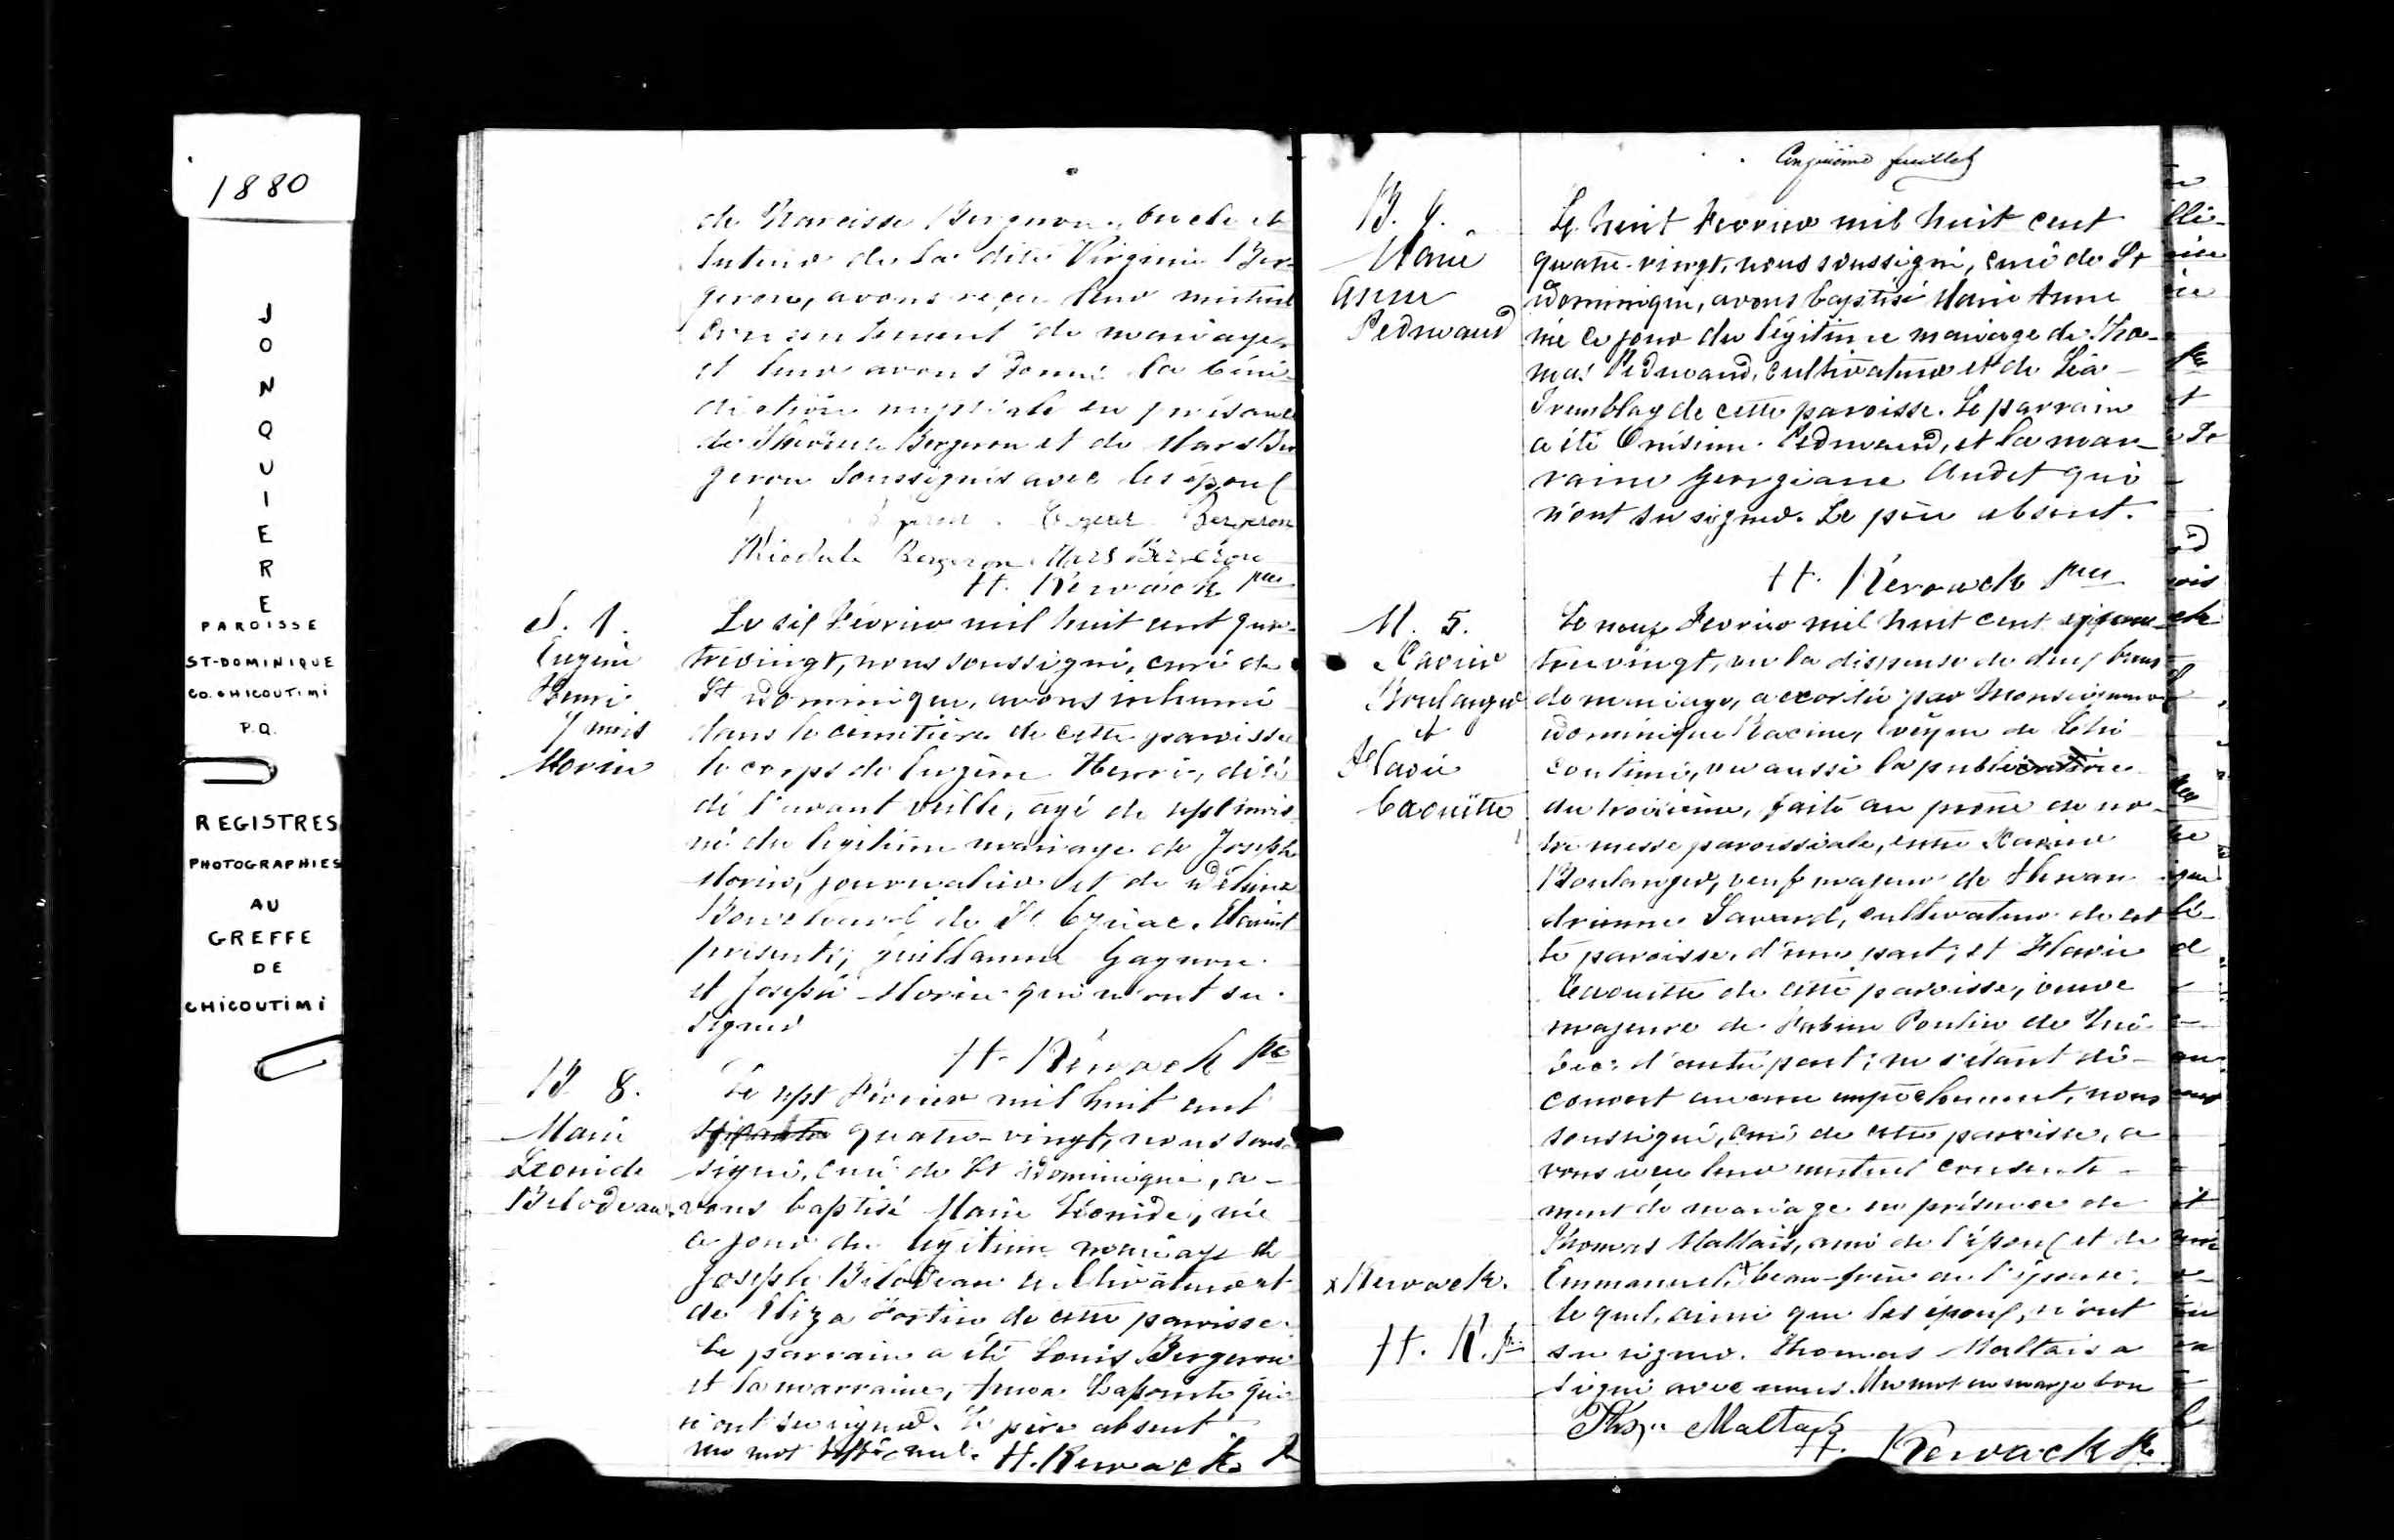 1880
JONQUIERE
PAROISSE
ST-DOMINIQUE
CO. CHICOUTIMI
P.Q.
REGISTRES
PHOTOGRAPHIES
AU
GREFFE
DE
CHICOUTIMI
de Narcisse Bergeron, oncle et
tuteur de la dite Virginie Ber-
geron, avons reçu leur mutuel
consentement de mariage
et leur avons donné la béné-
diction nuptiale en présence
de Théodule Bergeron et de Mars Ber
geron soussignés avec les époux
Bergeron
Théodule Bergeron Mars Bergeron
H. Kérouack ptre
S. 1.
Eugène
Henri
7 mois
Morin
Le six Février mil huit cent qua-
trevingt, nous soussigné, curé de
St Dominique, avons inhumé
dans le cimetière de cette paroisse
le corps de Eugène Henri, décé
dé l'avant veille, âgé de sept mois
né du légitime mariage de Joseph
Morin, journalier et de Délima
Bouchard de St Cyriac. Etaient
présents, Guillaume Gagnon
et Joseph Morin qui n'ont su
signer
H. Kérouack ptre
B 8.
Marie
Léonide
Bilodeau
Le sept Février mil huit cent
quatre-vingt, nous sous-
signé, curé de St Dominique, a-
vons baptisé Marie Léonide, née
ce jour du légitime mariage de
Joseph Bilodeau cultivateur et
de Eliza Fortin de cette paroisse.
Le parrain a été Louis Bergeron
et la marraine, Anna Lapointe qui
n'ont su signer. Le père absent
un mot biffé nul. H. Kerouack
Cinquième feuillet
B. 9.
Marie
Anne
Pedneaud
Le huit Fevrier mil huit cent
quatre-vingt, nous soussigné, curé de St
Dominique, avons baptisé Marie Anne
née ce jour du légitime mariage de Tho-
mas Pedneaud, cultivateur et de Léa
Tremblay de cette paroisse. Le parrain
a été Onésime Pedneaud, et la mar-
raine Georgiane Audet qui
n'ont su signer. Le père absent.
H. Kérouack ptre
M. 5.
Xavier
Boulanger
et
Flavie
Caouette
Le neuf Fevrier mil huit cent
trevingt, vu la dispense de deux bans
de mariage, accordée par Monseigneur
Dominique Racine, évêque de Chi
coutimi, vu aussi la publication
du troisième, faite au prône de no-
tre messe paroissiale, entre Xavier
Boulanger, veuf majeur de
Savard, cultivateur de cet
te paroisse, d'une part; et Flavie
Caouette de cette paroisse, veuve
majeure de Fabien Poulin de Qué-
bec d'autre part; ne s'étant dé-
couvert aucun empêchement, nous
soussigné, curé de cette paroisse, a
vons reçu leur mutuel consente-
ment de mariage en présence de
Thomas Maltais, ami de l'époux et de
Emmanuel x beau-frère de l'épouse,
lequel, ainsi que les époux, n'ont
su signer. Thomas Maltais a
signé avec nous. Un mot en marge bon
x Kerouack.
H. K. ptre
Ths. Maltais
H. Kerouack ptre